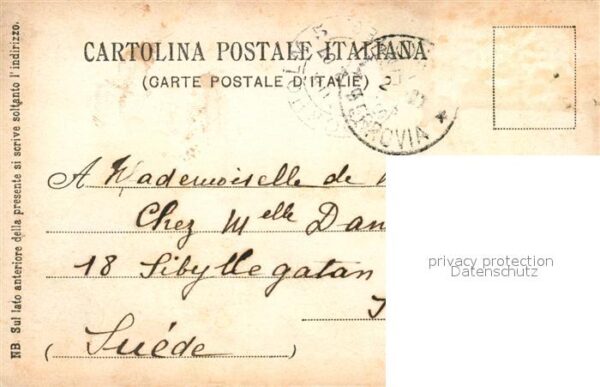 CARTOLINA POSTALE ITALIANA
(CARTE POSTALE D'ITALIE)
NB. Sul lato anteriore della presente si scrive soltanto l'indirizzo.
FERROVIA
2
A Mademoiselle de
Chez Melle Dan
18 Sibyllegatan
(Suéde)
privacy protection
Datenschutz